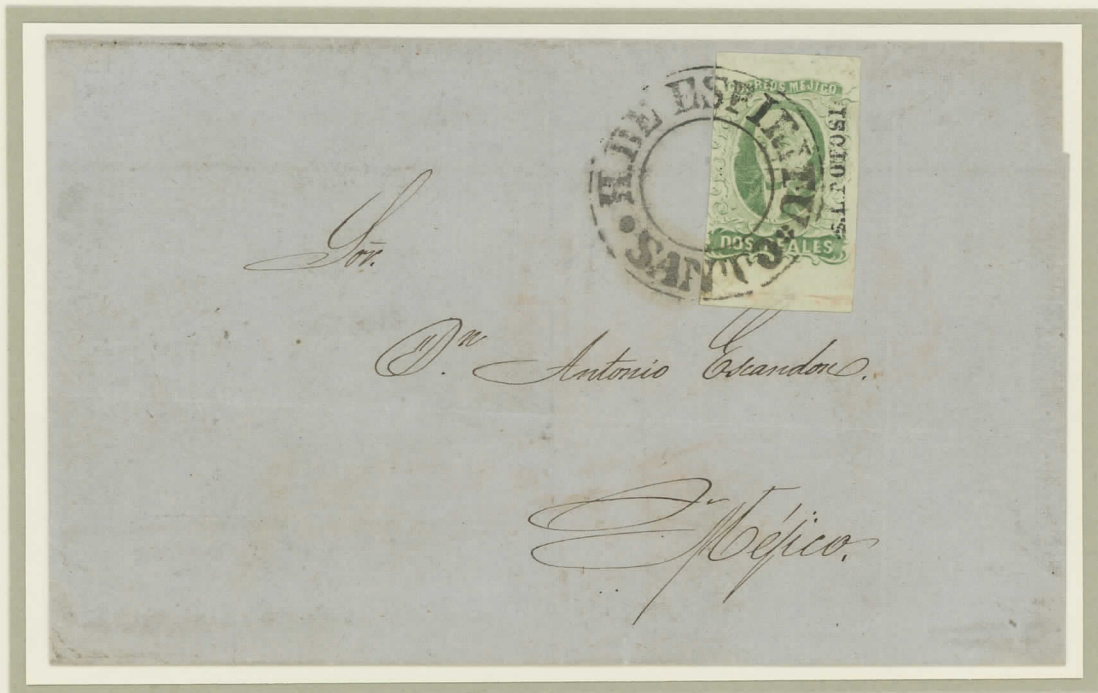 CORREOS MEJICO
S.L.POTOSI
DOS REALES
H. DE ESPIRITU SANTO
Sor.
Dn. Antonio Escandon.
Méjico.